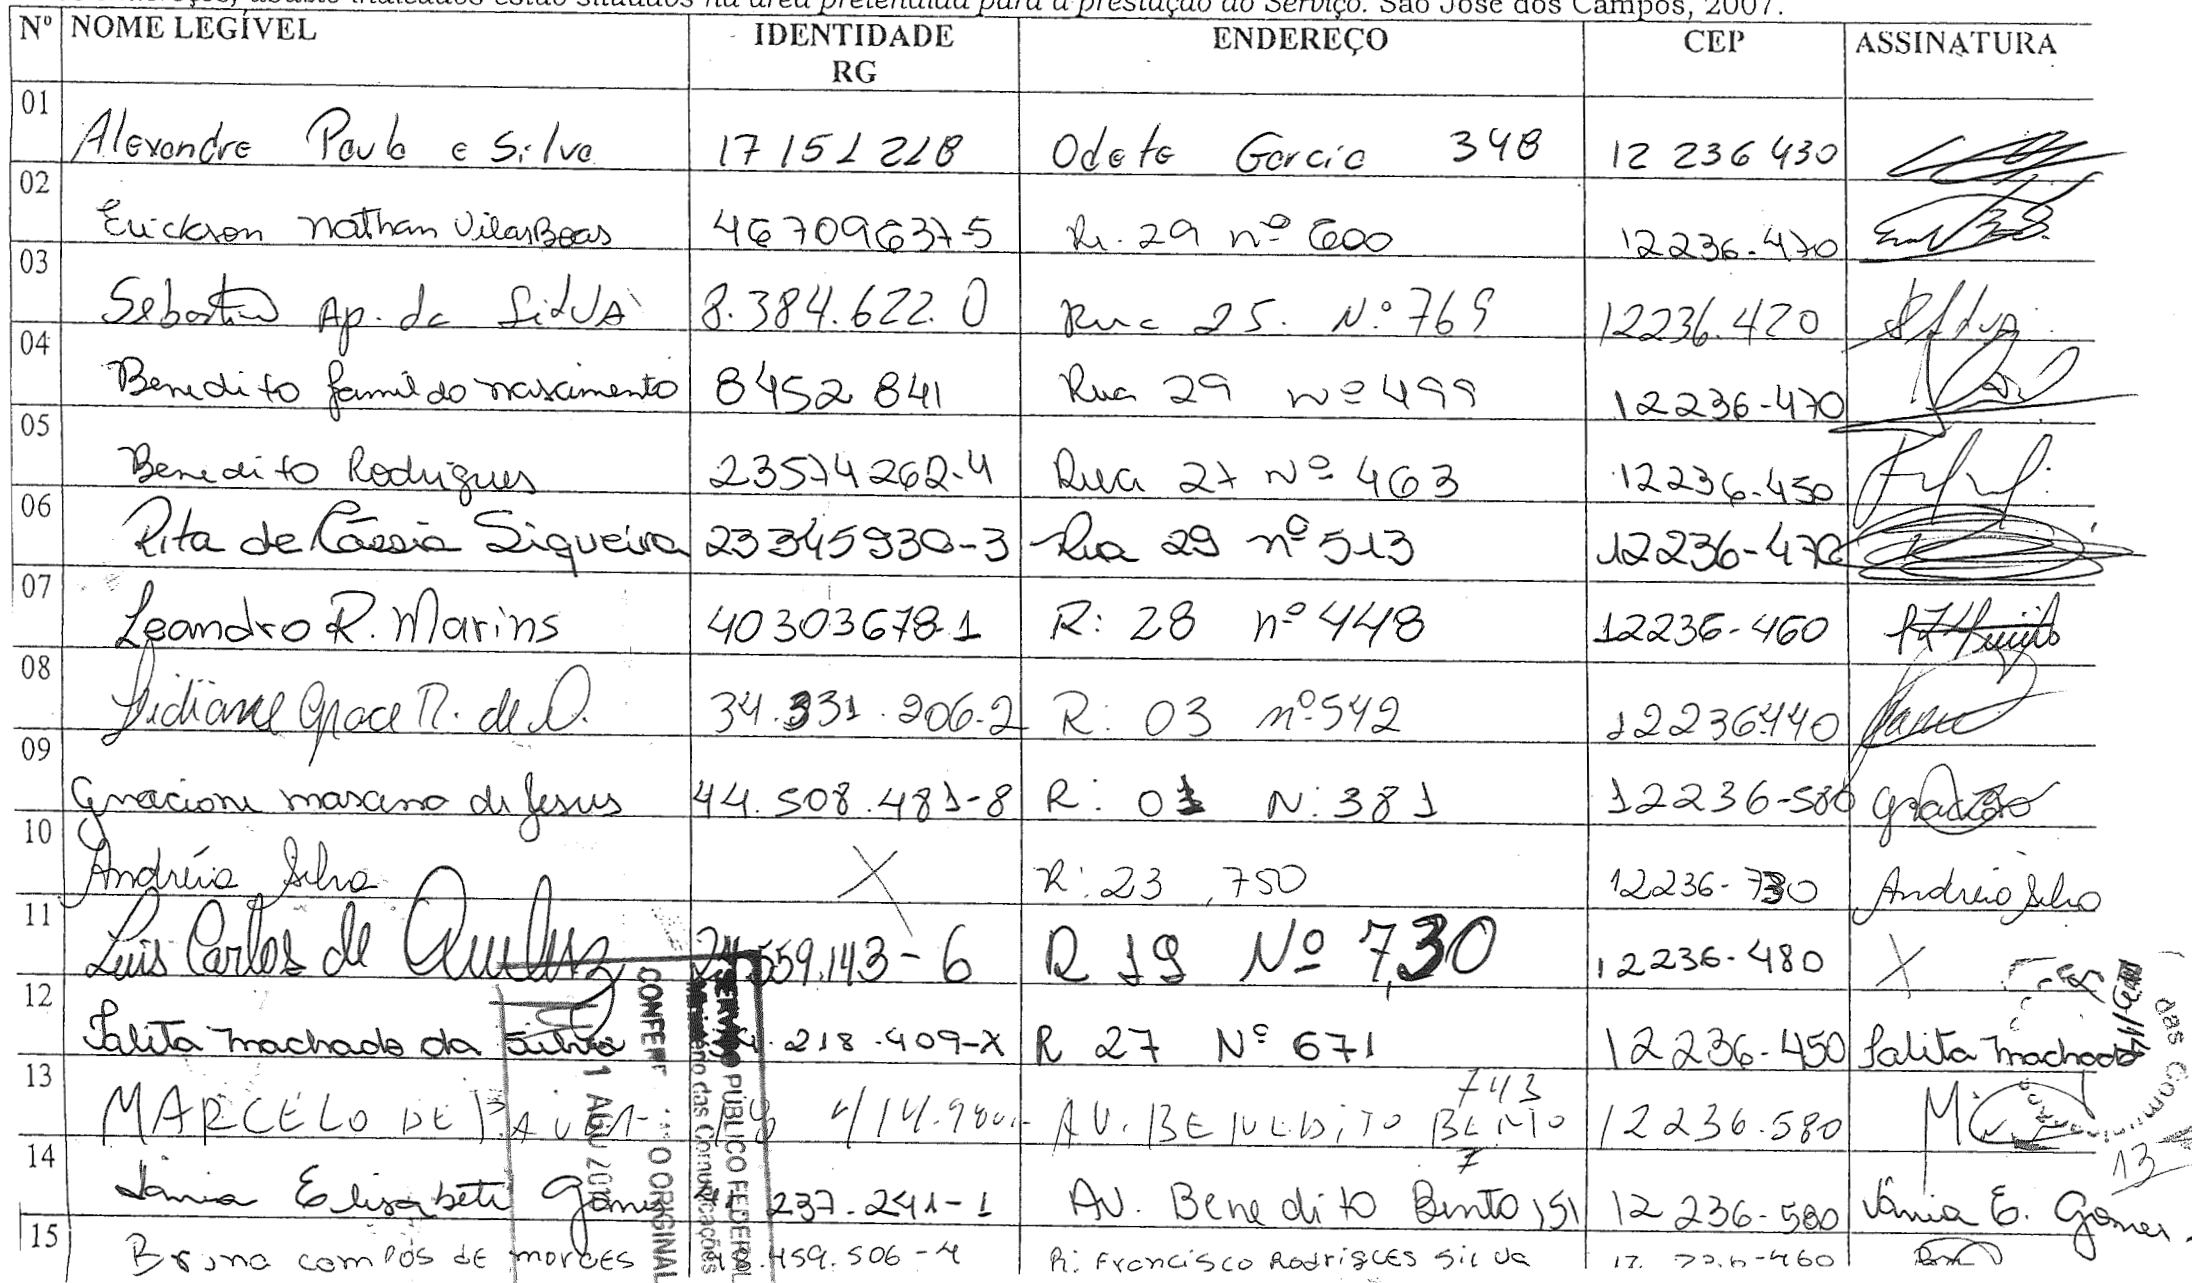 abaixo indicados estão situados na área pretendida para a prestação do Serviço. São José dos Campos, 2007.
Nº NOME LEGÍVEL IDENTIDADE RG ENDEREÇO CEP ASSINATURA
01 Alexandre Paulo e Silva 17151218 Odete Garcia 348 12 236 430
02 Erickson Nathan Vilas Boas 467096375 R. 29 nº 600 12236-470
03 Sebastião Ap. da Silva 8.384.622.0 Rua 25. Nº 769 12236.420
04 Benedito Jamil do nascimento 8452841 Rua 29 nº 499 12236-470
05 Benedito Rodrigues 23574262-4 Rua 27 Nº 463 12236-450
06 Rita de Cássia Siqueira 23345930-3 Rua 29 nº 513 12236-470
07 Leandro R. Marins 40303678-1 R: 28 nº 448 12236-460
08 Lidiane Grace R. de O. 34.331.206-2 R: 03 nº 542 12236440
09 de Jesus 44.508.481-8 R: 01 N: 381 12236-580
10 Andréia Silva X R: 23, 750 12236-730 Andréia Silva
11 Luis Carlos de 559.143-6 R 19 Nº 730 12236-480 X
12 Talita Machado da Silva .218.409-X R 27 Nº 671 12236-450 Talita Machado
13 MARCELO DE PAIVA AV. BENEDITO BENTO 743 12236.580
14 Vânia Elisabeti Gomes 237.241-1 AV. Benedito Bento 151 12 236-580 Vânia E. Gomes.
15 Bruna campos de moraes .459.506-4 R: Francisco Rodrigues Silva
SERVIÇO PÚBLICO FEDERAL
Ministério das Comunicações
CONFERE O ORIGINAL
1 AGO 20
das Comuni
13